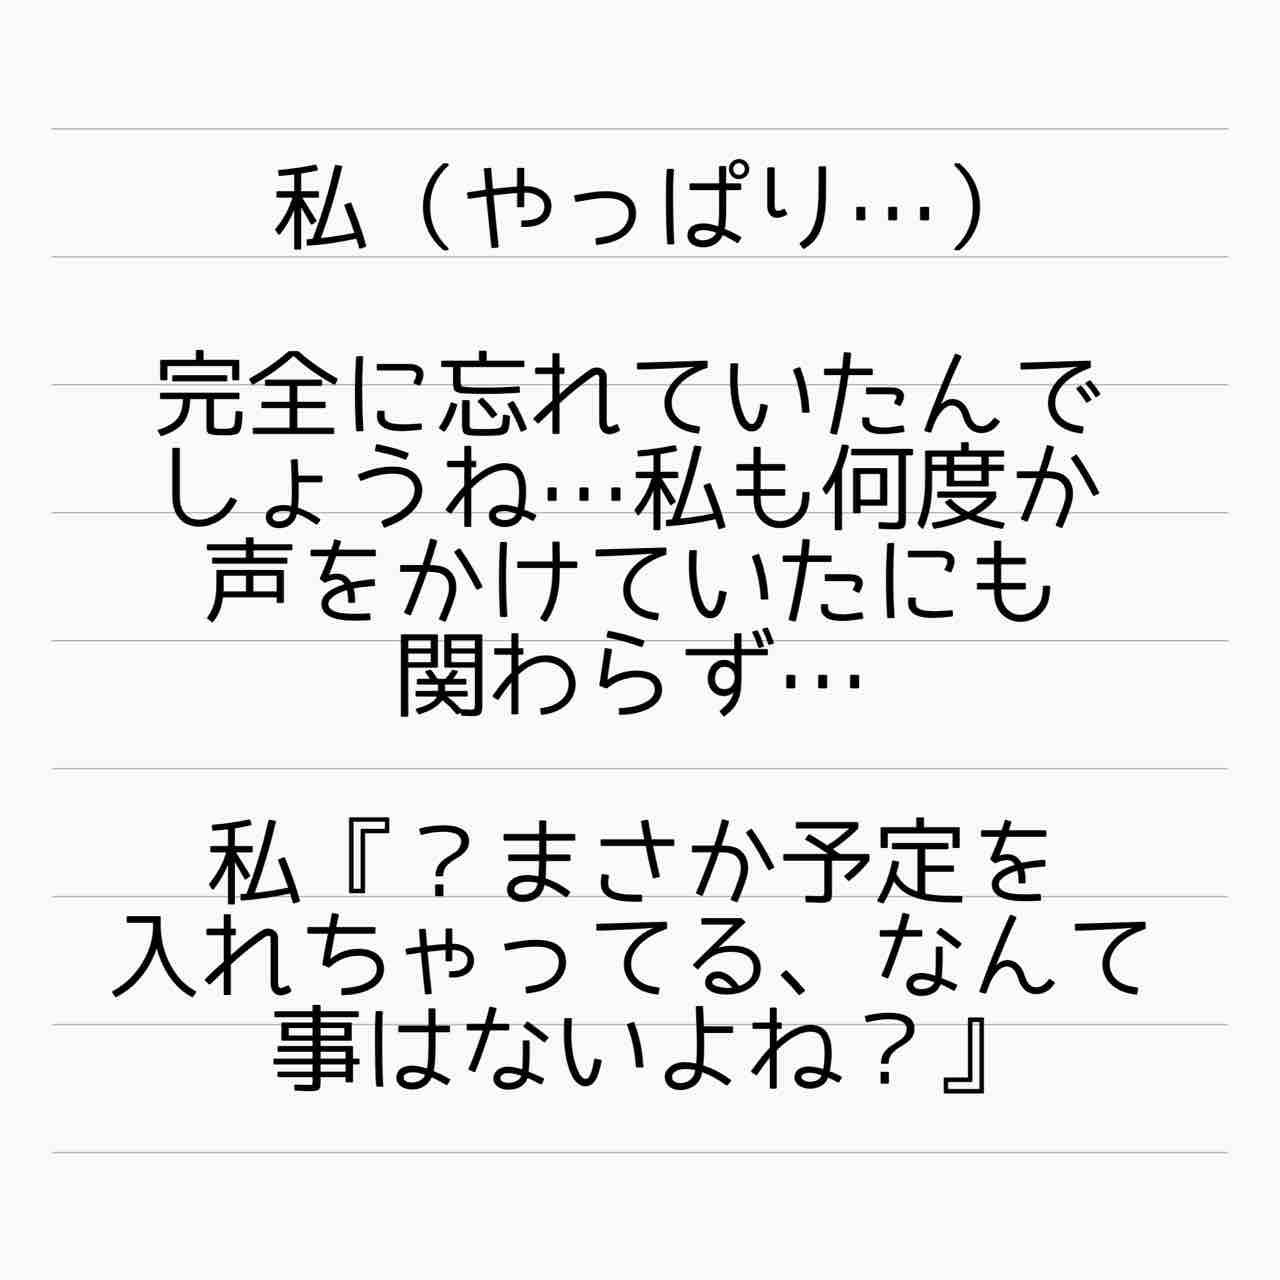 私（やっぱり…）
完全に忘れていたんで
しょうね…私も何度か
声をかけていたにも
関わらず…
私『？まさか予定を
入れちゃってる、なんて
事はないよね？』